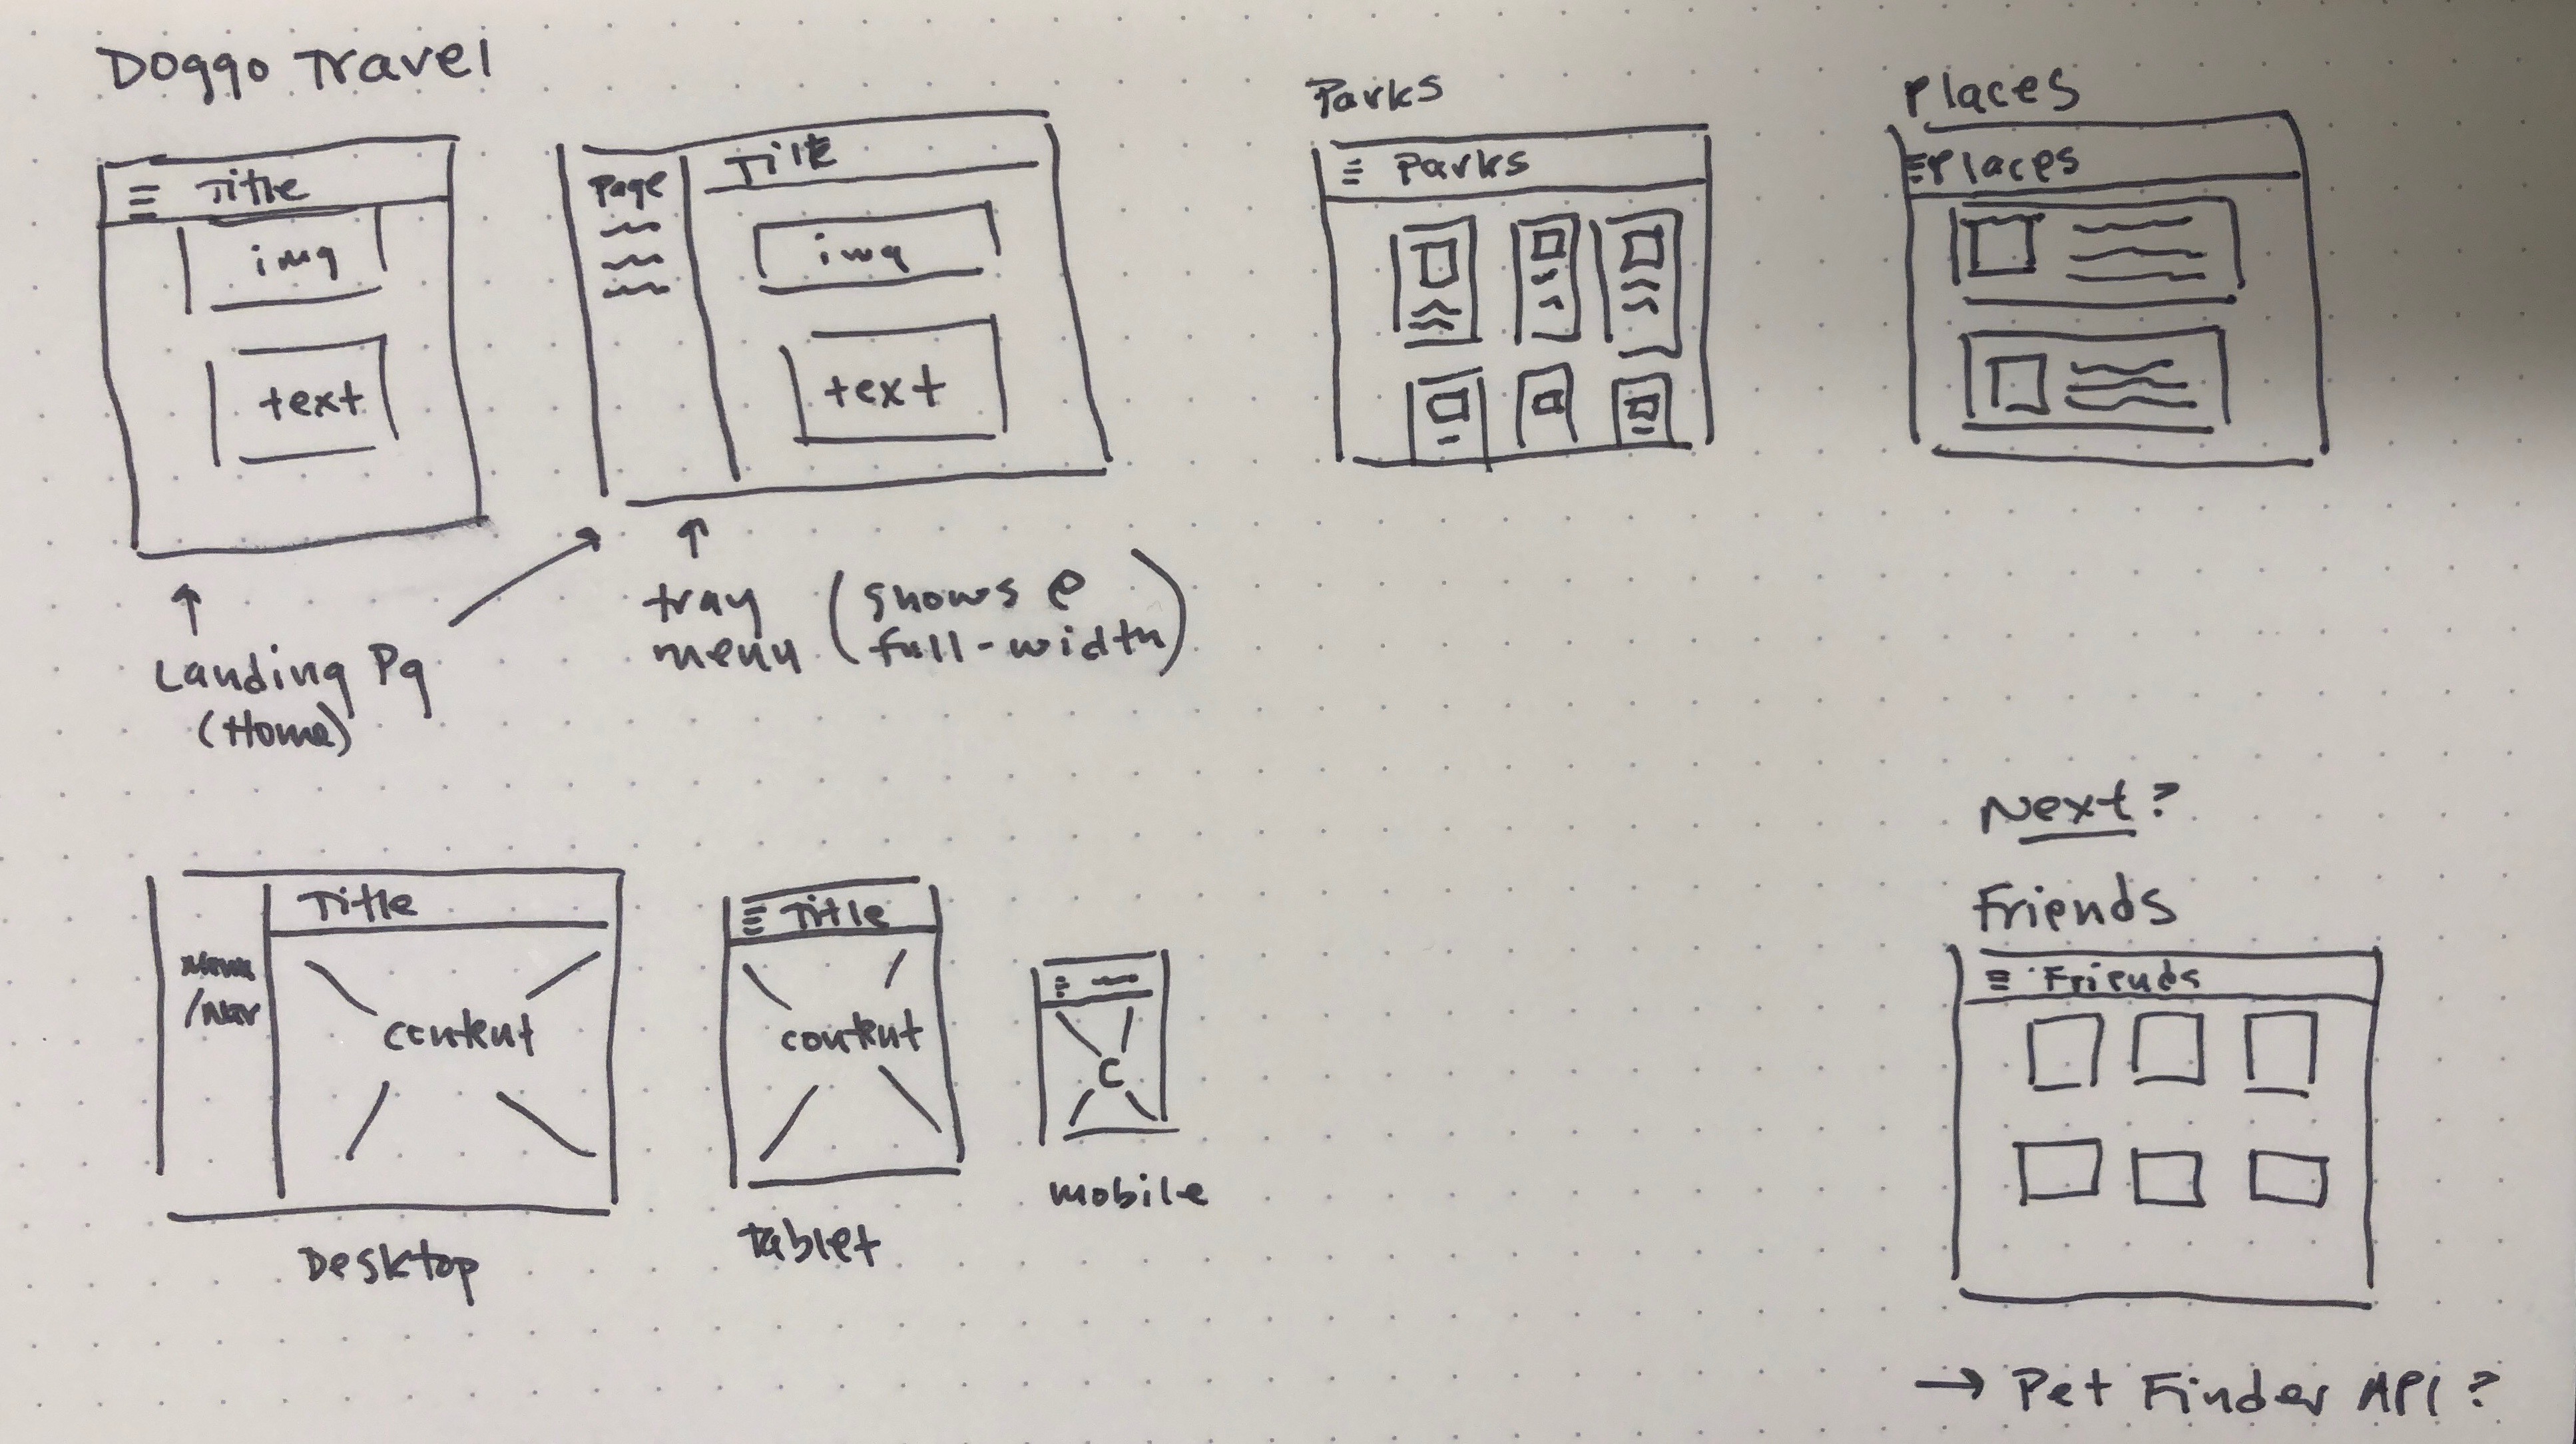 Doggo Travel
Title
img
text
Page
Title
img
text
Landing Pg
(Home)
tray
menu
(shows @
full-width)
Parks
Parks
Places
Places
Title
/Nav
content
Desktop
Title
content
Tablet
C
mobile
Next?
Friends
Friends
→ Pet Finder API?